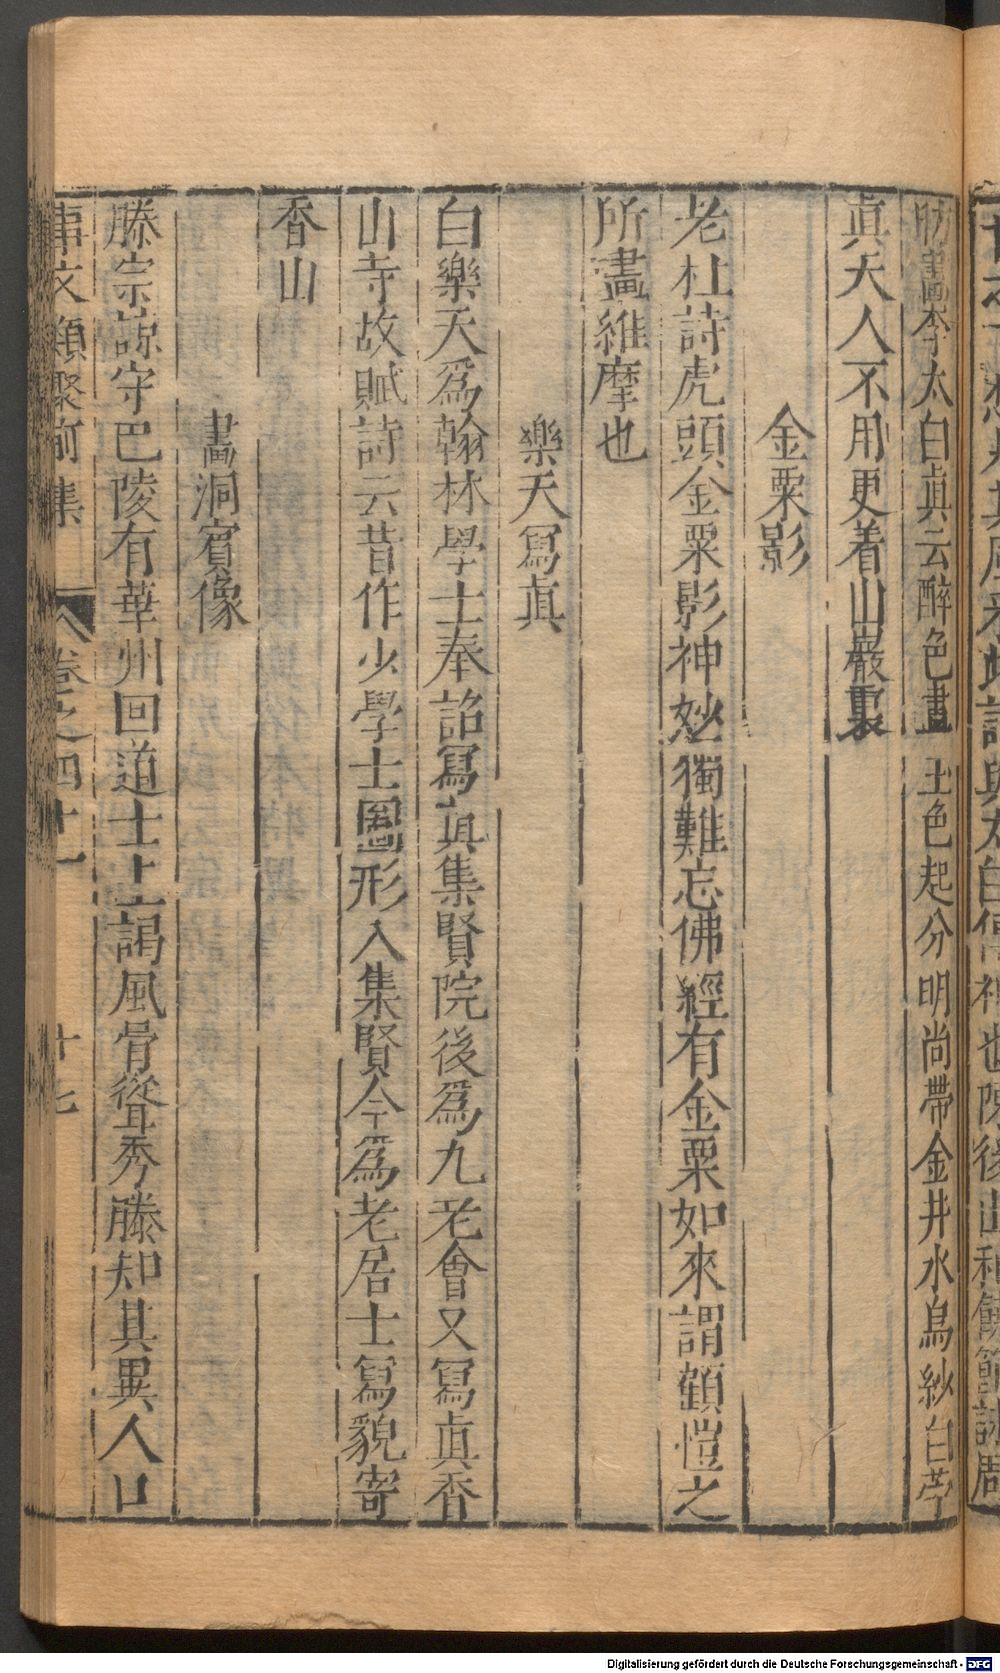 昉畫李太白眞云醉色畫土色起分明尚帶金井水烏紗白苧
眞天人不用更着山巖裏
金粟影
老杜詩虎頭金粟影神妙獨難忘佛經有金粟如來謂顧愷之
所畫維摩也
樂天寫眞
白樂天爲翰林學士奉詔寫眞集賢院後爲九老會又寫眞香
山寺故賦詩云昔作少學士圖形入集賢今爲老居士寫貌寄
香山
畫洞賓像
滕宗諒守巴陵有華州回道士上謁風骨聳秀滕知其異人口
事文類聚前集 卷之四十一 十七
Digitalisierung gefördert durch die Deutsche Forschungsgemeinschaft - DFG